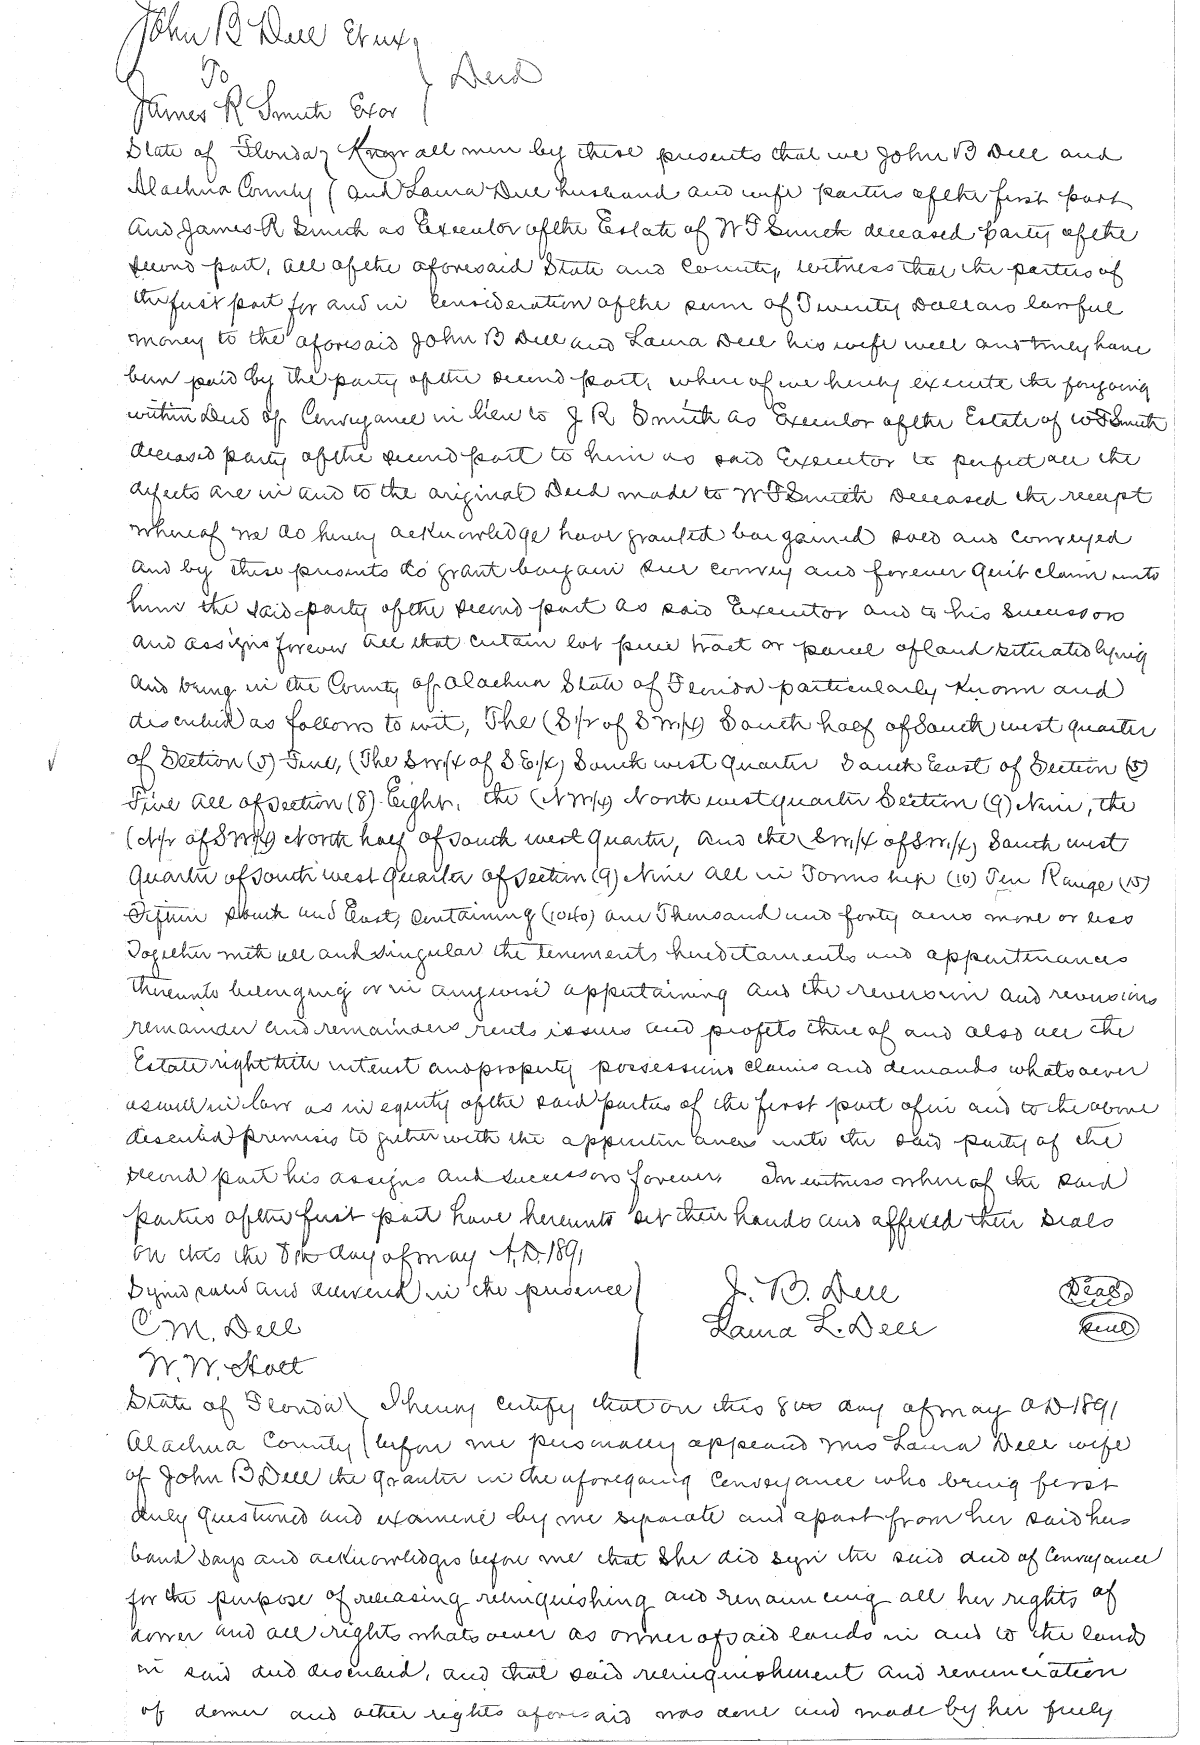 John B Dell et ux,
To
Deed
James R Smith Exor
State of Florida Know all men by these presents that we John B Dell and
Alachua County and Laura Dell husband and wife parties of the first part
And James R Smith as Executor of the Estate of W T Smith deceased party of the
second part, all of the aforesaid State and County, witness that the parties of
the first part for and in consideration of the sum of Twenty Dollars lawful
money to the aforesaid John B Dell and Laura Dell his wife well and truly have
been paid by the party of the second part, where of we hereby execute the forgoing
within Deed of Conveyance in lieu to J R Smith as Executor of the Estate of W T Smith
deceased party of the second part to him as said Executor to perfect all the
defects are in and to the original Deed made to W T Smith Deceased the receipt
whereof we do hereby acknowledge have granted bargained sold and conveyed
And by these presents do grant bargain sell convey and forever quit claim unto
him the said party of the second part as said Executor and to his Successors
and assigns forever all that certain lot piece tract or parcel of land situated lying
and being in the County of Alachua State of Florida particularly Known and
described as follows to wit, The (S/2 of S W/4) South half of South west quarter
of Section (5) Five, (The SW/4 of S E/4) South west Quarter South East of Section (5)
Five all of section (8) Eight, the (N W/4) North west quarter Section (9) Nine, the
(N/2 of SW/4) North half of South west Quarter, and the (SW/4 of SW/4) South west
Quarter of South west Quarter of section (9) Nine all in Township (10) Ten Range (15)
Fifteen South and East, containing (1040) one Thousand and forty acres more or less
Together with all and singular the tenements hereditaments and appurtenances
thereunto belonging or in anywise appertaining and the reversion and reversions
remainder and remainders rents issues and profits there of and also all the
Estate right title interest and property possessions claims and demands whatsoever
as well in law as in equity of the said parties of the first part of in and to the above
described premises to gether with the appurtenances unto the said party of the
second part his assigns and successors forever. In witness where of the said
parties of the first part have hereunto set their hands and affixed their seals
on this the 8th day of may A.D. 1891
Signed sealed and delivered in the presence
J. B. Dell Seal
C M. Dell
Laura L. Dell Seal
W. W. Holt
State of Florida I hereby certify that on this 8th day of may AD 1891
Alachua County before me personally appeared Mrs Laura Dell wife
of John B Dell the grantor in the aforegoing Conveyance who being first
duly Questioned and examine by me separate and apart from her said hus
band says and acknowledges before me that She did sign the said deed of Conveyance
for the purpose of releasing relinquishing and renouncing all her rights of
dower and all rights whatsoever as owner of said lands in and to the lands
in said deed described, and that said relinquishment and renunciation
of dower and other rights aforesaid was done and made by her freely